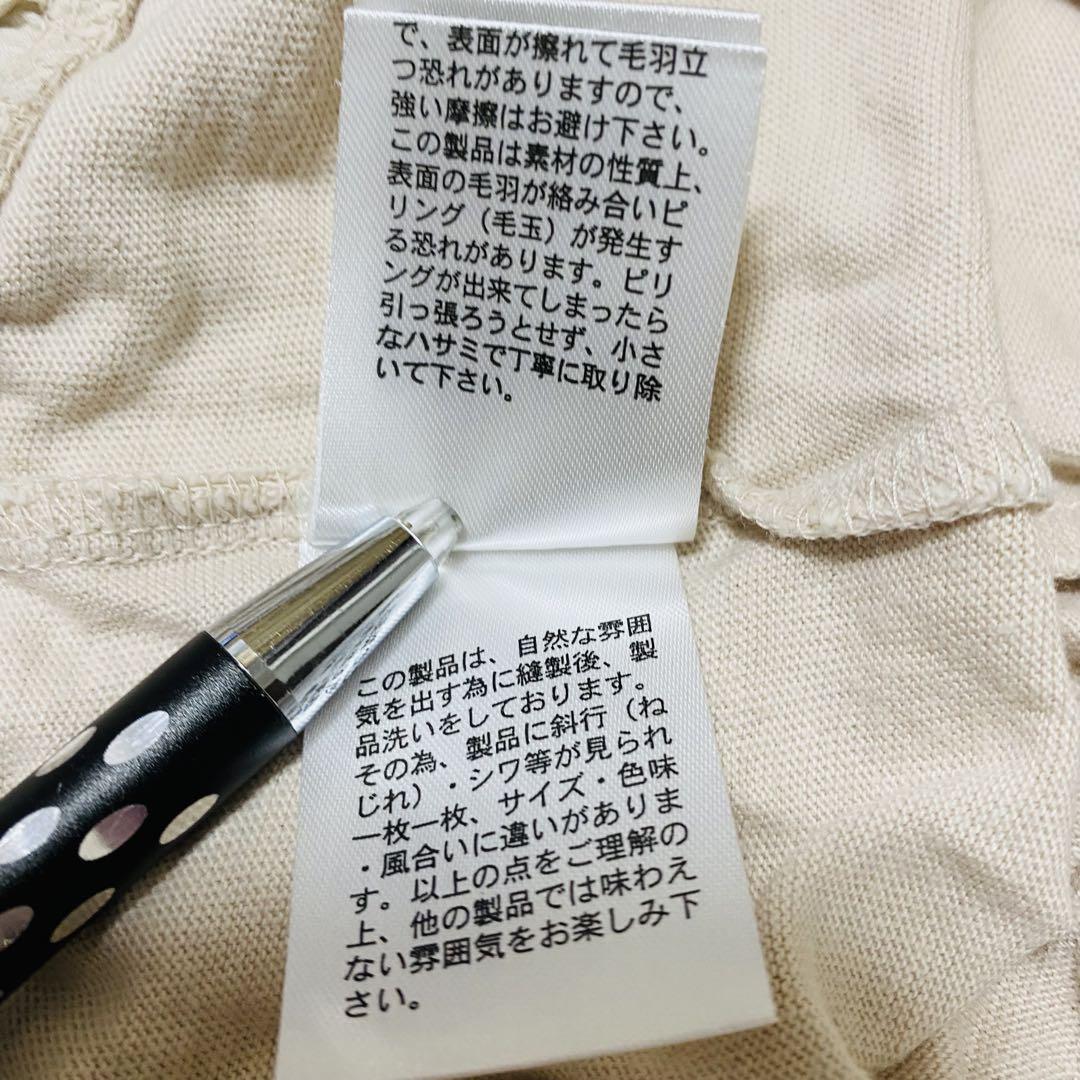 で、表面が擦れて毛羽立
つ恐れがありますので、
強い摩擦はお避け下さい。
この製品は素材の性質上、
表面の毛羽が絡み合いピ
リング（毛玉）が発生す
る恐れがあります。ピリ
ングが出来てしまったら
引っ張ろうとせず、小さ
なハサミで丁寧に取り除
いて下さい。
この製品は、自然な雰囲
気を出す為に縫製後、製
品洗いをしております。
その為、製品に斜行（ね
じれ）・シワ等が見られ
一枚一枚、サイズ・色味
・風合いに違いがありま
す。以上の点をご理解の
上、他の製品では味わえ
ない雰囲気をお楽しみ下
さい。